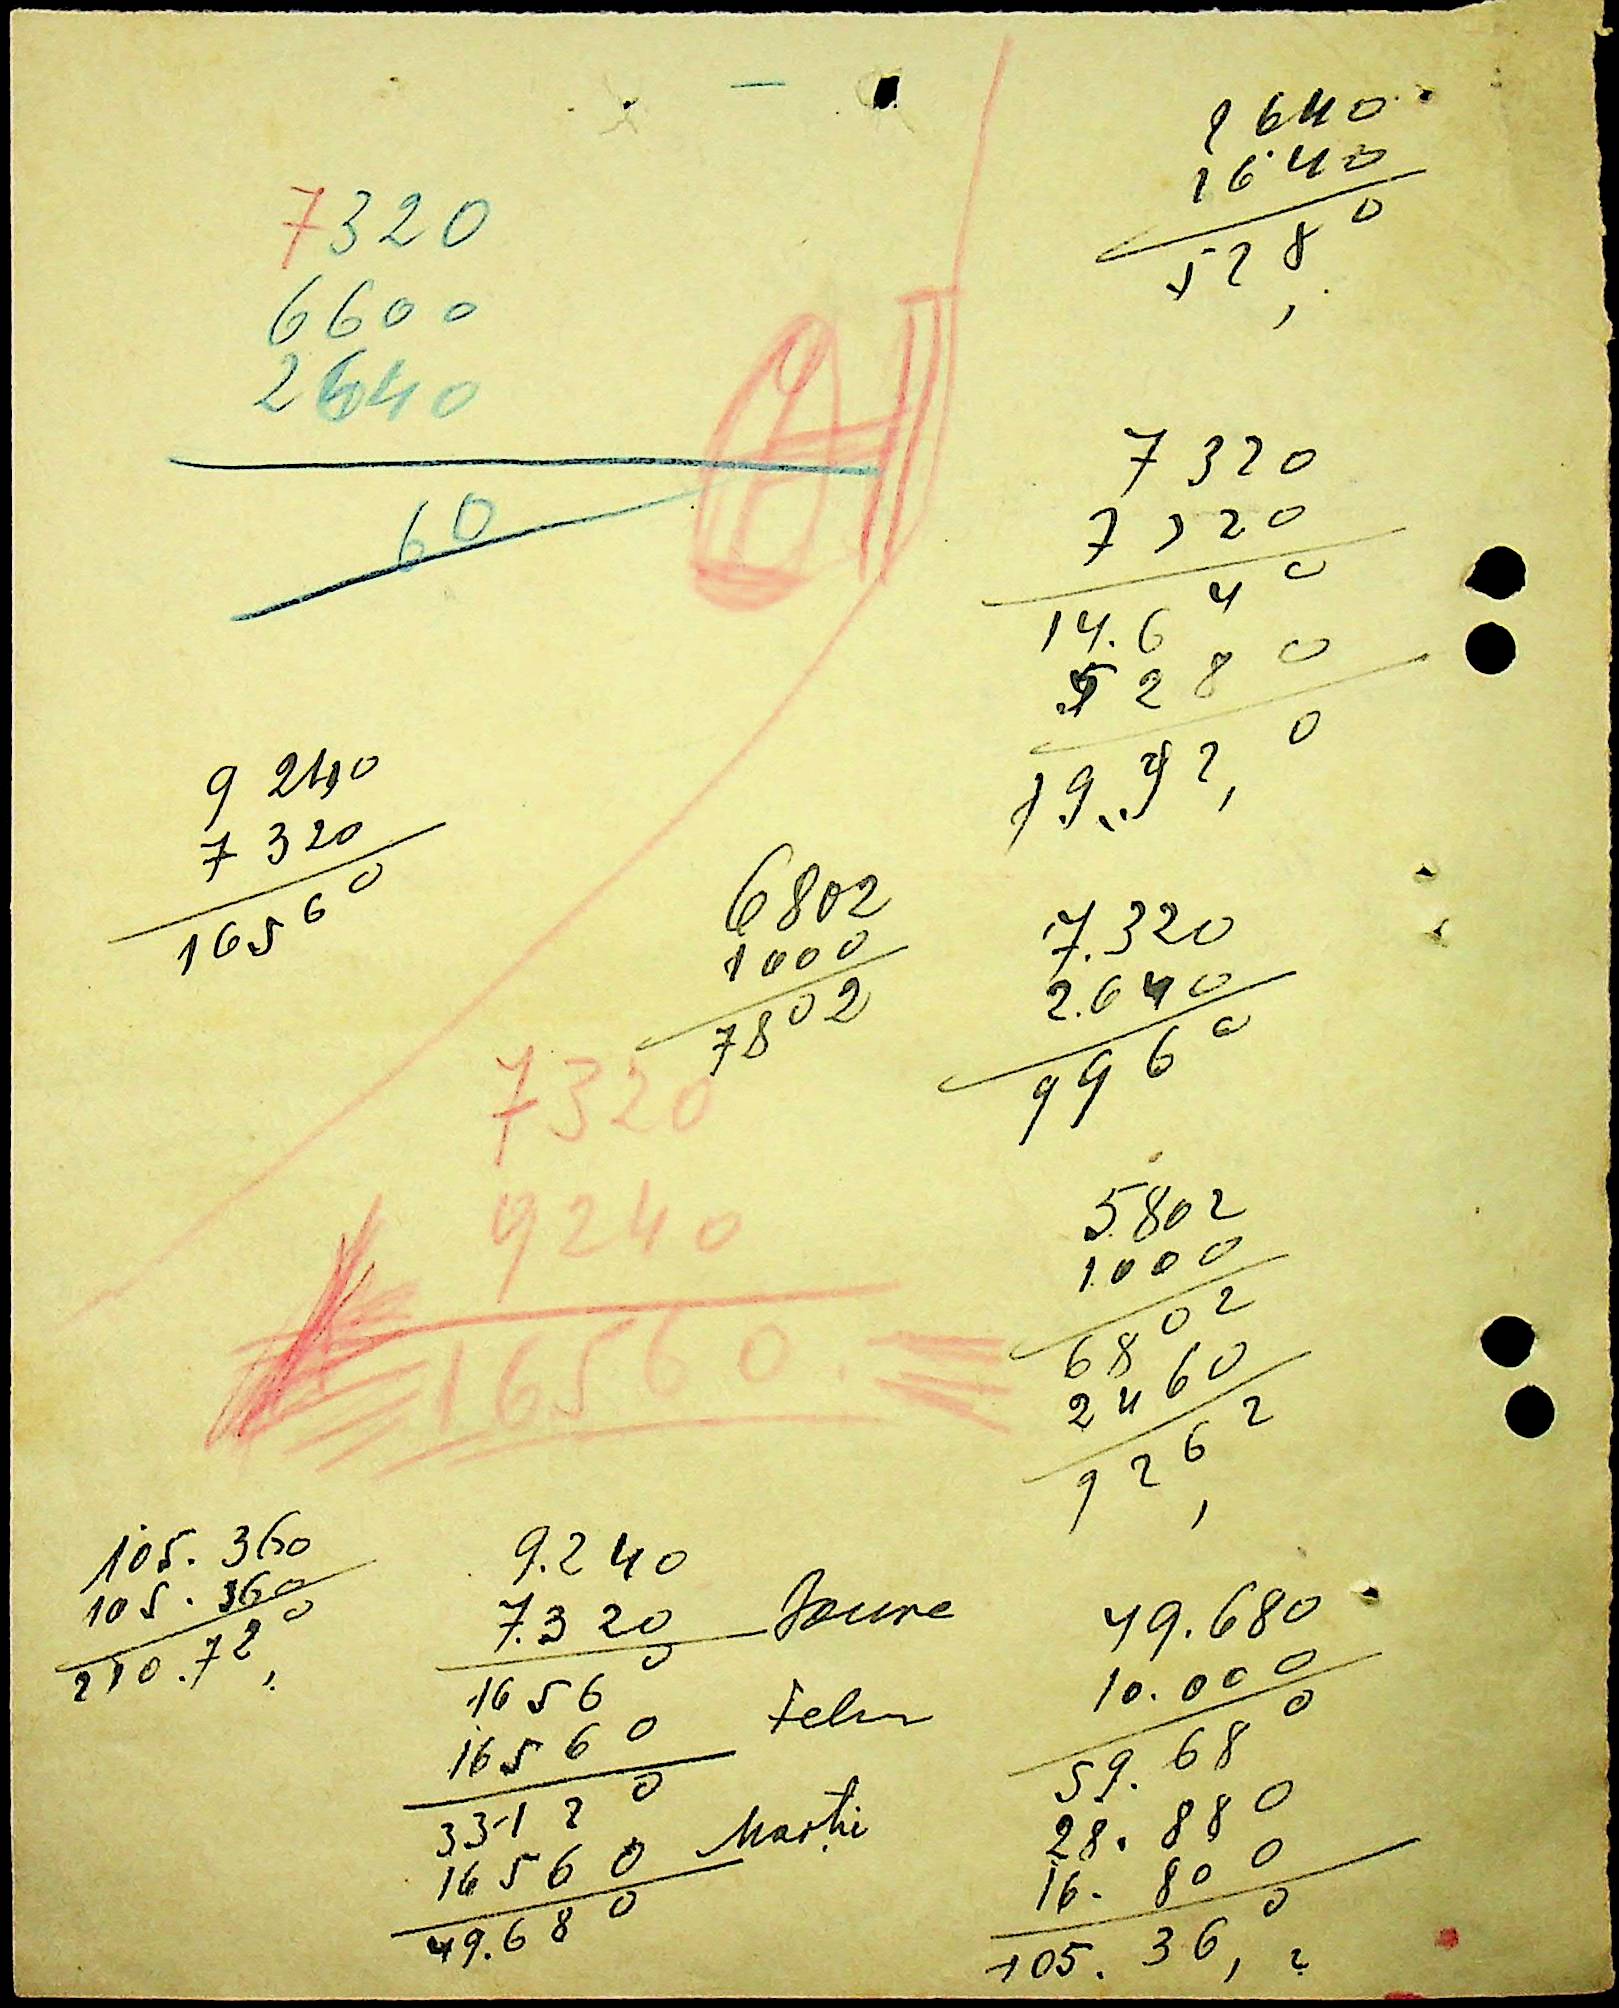 7320
6600
2640
60
2640
2640
5280
7320
7320
14.640
5280
19.920
9240
7320
16560
6802
1000
7802
7.320
2.640
9960
7320
9240
16560.
5802
1000
6802
2460
9262
105.360
105.360
210.720
9.240
7.320
16560
16560
33120
16560
Martie
49.680
49.680
10.000
59.680
28.880
16.800
105.360